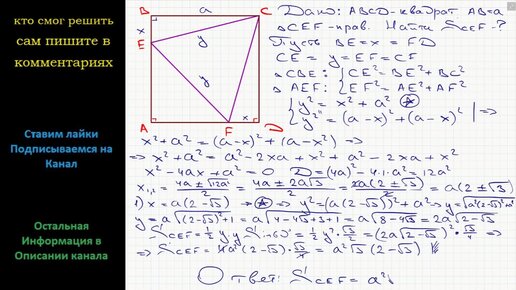 кто смог решить
сам пишите в
комментариях
Ставим лайки
Подписываемся на
Канал
Остальная
Информация в
Описании канала
B a C
x
E y
y
x
A F D
Дано: ABCD-квадрат AB=a
△CEF-прав. Найти S_CEF-?
Пусть BE=x=FD
CE=y=EF=CF
△CBE: {CE²=BE²+BC²
△AEF: {EF²=AE²+AF²
{y²=x²+a² (*)
{y²=(a-x)²+(a-x)² | =>
x²+a²=(a-x)²+(a-x²) =>
=> x²+a²=a²-2xa+x²+a²-2xa+x²
x²-4ax+a²=0 D=(4a)²-4·1·a²=12a²
x₁,₂=(4a±√12a²)/2=(4a±2a√3)/2=2a(2±√3)/2=a(2±√3)
1) x=a(2-√3) => (*) => y²=(a(2-√3))²+a² => y=√(a²(2-√3)²+a²)
y=a√((2-√3)²+1=a√(4-4√3+3+1=a√(8-4√3=2a√(2-√3)
S_CEF=½y·y·sin60°=½y²·√3/2=(2a√(2-√3))²·√3/4 =>
=> S_CEF=4a²(2-√3)·√3/4=a²√3(2-√3)
Ответ: S_CEF=a²√